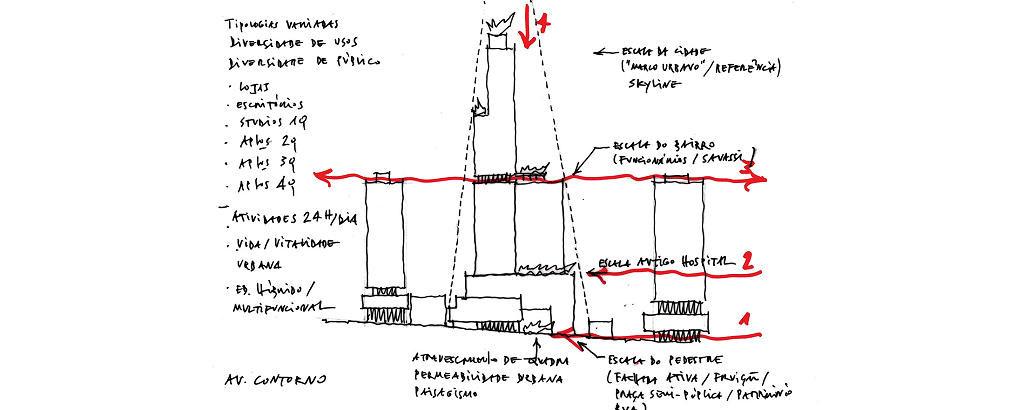 TIPOLOGIAS VARIADAS
DIVERSIDADE DE USOS
DIVERSIDADE DE PÚBLICO
· LOJAS
· ESCRITÓRIOS
· STUDIOS 1Q
· APTOS 2Q
· APTOS 3Q
· APTOS 4Q
· ATIVIDADES 24H/DIA
· VIDA/VITALIDADE
URBANA
· ED. HÍBRIDO/
MULTIFUNCIONAL
AV. CONTORNO
4
ESCALA DA CIDADE
("MARCO URBANO"/REFERÊNCIA)
SKYLINE
ESCALA DO BAIRRO
(FUNCIONÁRIOS/SAVASSI)
3
ESCALA ANTIGO HOSPITAL 2
1
ATRAVESSAMENTO DE QUADRA
PERMEABILIDADE URBANA
PAISAGISMO
ESCALA DO PEDESTRE
(FACHADA ATIVA/FRUIÇÃO/
PRAÇA SEMI-PÚBLICA/PATRIMÔNIO
RUA)